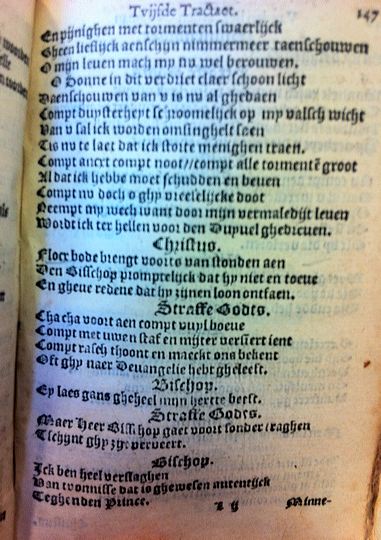 Tvijfde Tractaet. 147
En pijnighen met tormenten swaerlijck
Gheen lieflijck aenschijn nimmermeer taenschouwen
O mijn leuen mach my nv wel berouwen.
O Sonne in dit verdriet claer schoon licht
Daenschouwen van v is nv al ghedaen
Compt duysterheyt seer vroomelijck op my valsch wicht
Van v sal ick worden omsinghelt saen
Tis nv te laet dat ick storte menighen traen.
Compt anext compt noot//compt alle tormentē groot
Al dat ick hebbe moet schudden en beuen
Compt nv doch o ghy vreeselijcke doot
Neempt my wech want door mijn vermaledijt leuen
Wordt ick ter hellen voor den Duyuel ghedreuen.
Christus.
Floer bode brengt voorts van stonden aen
Den Bisschop promptelijck dat hy niet en toeue
En gheue redene dat hy zijnen loon ontfaen.
Straffe Godts.
Cha cha voort aen compt vuyl boeue
Compt met uwen staf en mijter versiert ient
Compt rasch thoont en maeckt ons bekent
Oft ghy naer Deuangelie hebt gheleeft.
Bischop.
Ey laes gans gheheel mijn hertte beeft.
Straffe Godts.
Maer Heer Bisschop gaet voort sonder traghen
Tschijnt ghy zijt verveert.
Bischop.
Ick ben heel verslaghen
Van tvonnisse dat is ghewesen autentijck
Teghen den Prince.
Minne-